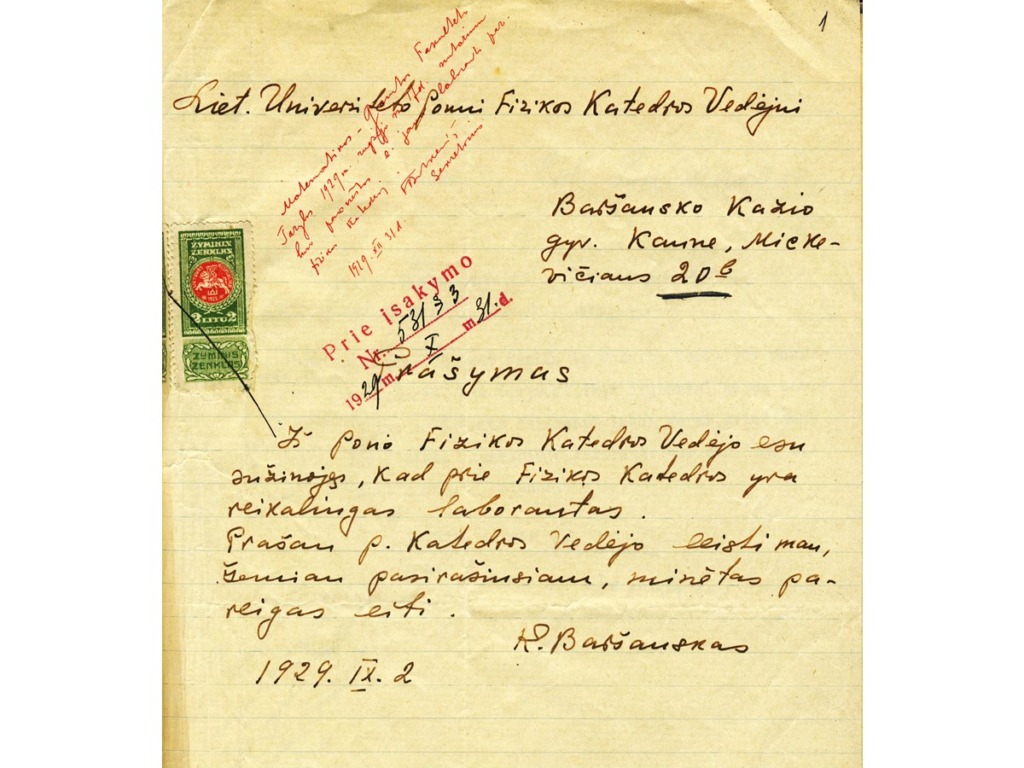 1
Liet. Universiteto Ponui Fizikos Katedros Vedėjui
Matematikos - Gamtos Fakulteto
Taryba 1929 m.
1929. XII. 31 d.
Baršausko Kažio
gyv. Kaune, Micke-
vičiaus 20b
ŽYMINIS
ŽENKLAS
2 LITU 2
ŽYMINIS
ŽENKLAS
Prie įsakymo
Nr. 53133
1929 m. X m. 31 d.
Prašymas
Iš Pono Fizikos Katedros Vedėjo esu
sužinojęs, kad prie Fizikos Katedros yra
reikalingas laborantas.
Prašau p. Katedros Vedėjo leisti man,
žemiau pasirašiusiam, minėtas pa-
reigas eiti.
K. Baršauskas
1929. IX. 2